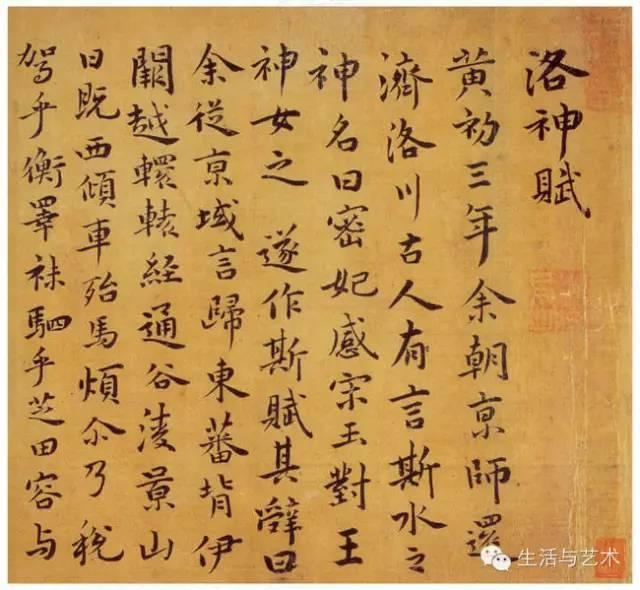 洛神賦
黃初三年余朝京師還
濟洛川古人有言斯水之
神名曰密妃感宋玉對王
神女之 遂作斯賦其辭曰
余從京域言歸東蕃背伊
闕越轘轅経通谷淩景山
日既西傾車殆馬煩尒乃稅
駕乎衡睪秣駟乎芝田容与
生活与艺术